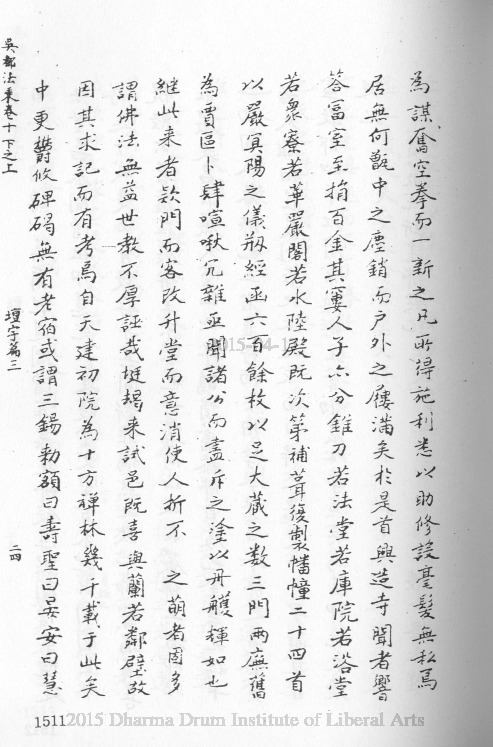 為謀奮空拳而一新之凡所得施利悉以助修設毫髮無私焉
居無何甑中之塵銷而戶外之屨滿矣於是首興造寺聞者響
答富室至捐百金其窶人子亦分錐刀若法堂若庫院若浴堂
若眾寮若華嚴閣若水陸殿既次第補葺復製幡幢二十四首
以嚴冥陽之儀剏經函六百餘枚以足大藏之數三門兩廡舊
為賈區卜肆喧啾冗雜亟聞諸公而盡斥之塗以丹雘輝如也
繼此來者款門而客改升堂而意消使人折不 之萌者固多
謂佛法無益世教不厚誣哉埏朅來試邑既喜與蘭若鄰壁故
因其求記而有考焉自天建初院為十方禪林幾千載于此矣
中更欝攸碑碣無有老宿或謂三錫勅額曰壽聖曰晏安曰慧
吳都法乘卷十下之上
壇宇篇三
二四
1511
2015-04-1
2015 Dharma Drum Institute of Liberal Arts